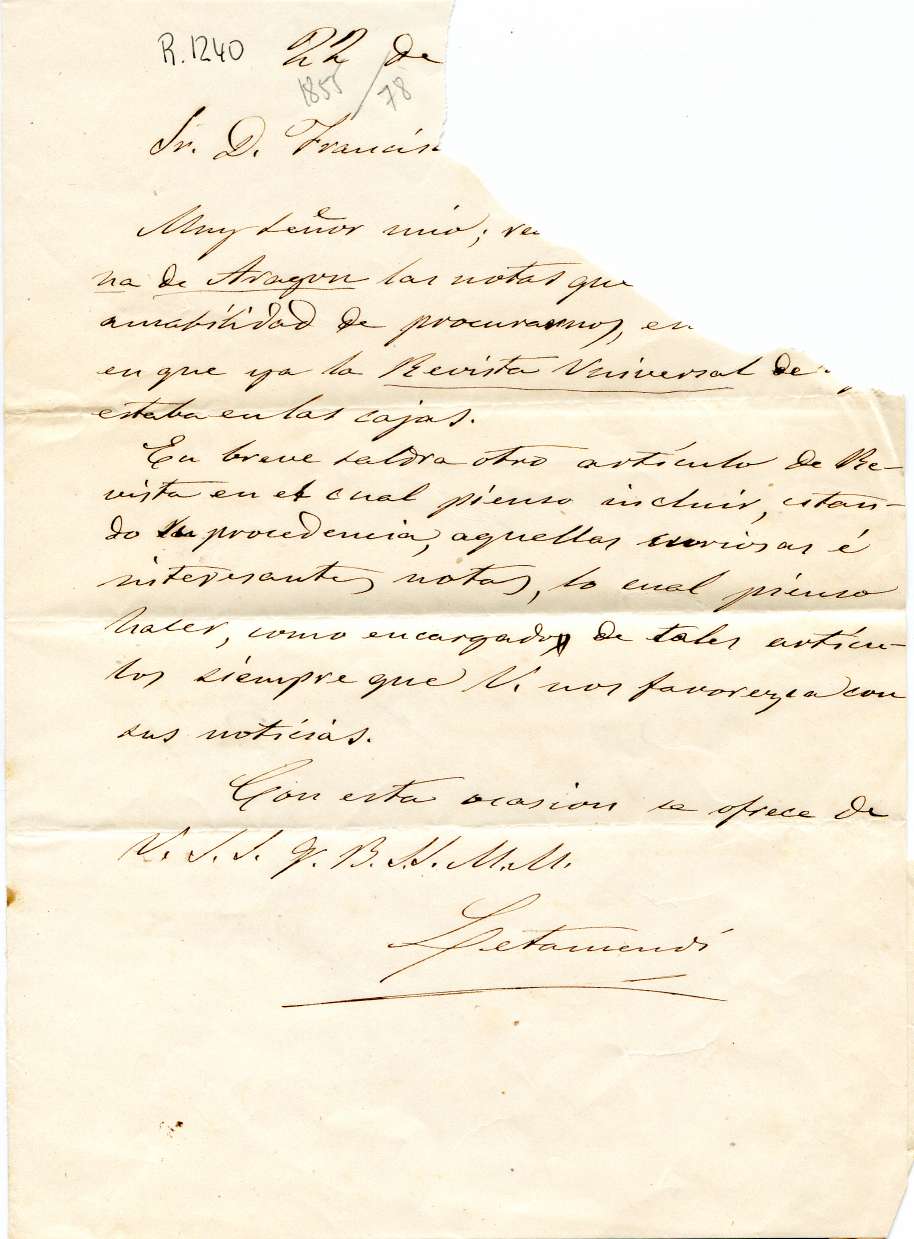 R.1240 22 de
1855/78
Sr. D. Francis
Muy señor mio; re
na de Aragon las notas que
amabilidad de procurarnos, en
en que ya la Revista Universal de
estaba en las cajas.
En breve saldra otro artículo de Re-
vista en el cual pienso incluir, citan-
do su procedencia, aquellas curiosas é
interesantes notas, lo cual pienso
hacer, como encargado de tales artícu-
los siempre que V. nos favorezca con
sus noticias.
Con esta ocasion se ofrece de
V. S. S. q. B. S. M. M.
Letamendi